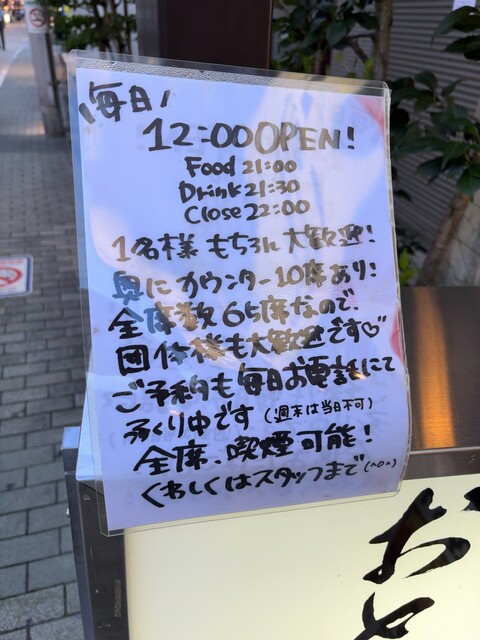 毎日
12:00 OPEN!
Food 21:00
Drink 21:30
Close 22:00
1名様 もちろん 大歓迎!
奥に カウンター10席あり!
全席数65席なので、
団体様も大歓迎です♡
ご予約も毎日お電話にて
承り中です(週末は当日不可)
全席、喫煙可能!
くわしくはスタッフまで(^o^)
お